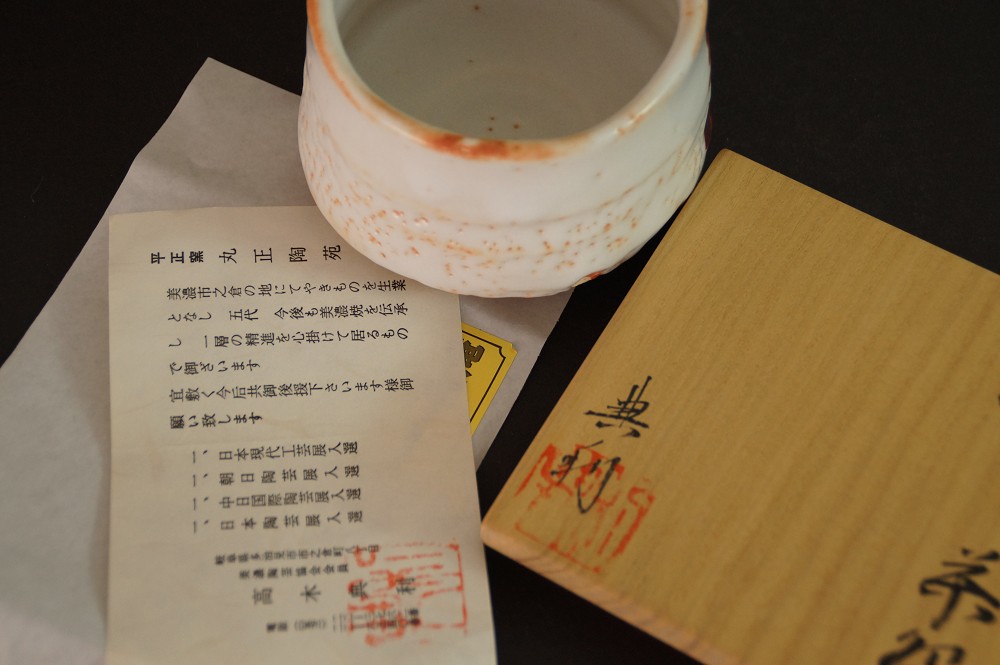 平正窯 丸正陶苑
美濃市之倉の地にてやきものを生業
となし 五代 今後も美濃焼を伝承
し 一層の精進を心掛けて居るもの
で御ざいます
宜敷く今后共御後援下さいます様御
願い致します
一、日本現代工芸展入選
一、朝日陶芸展入選
一、中日国際陶芸展入選
一、日本陶芸展入選
岐阜県多治見市市之倉町八丁目
美濃陶芸協会会員
高木典利
典利
茶碗